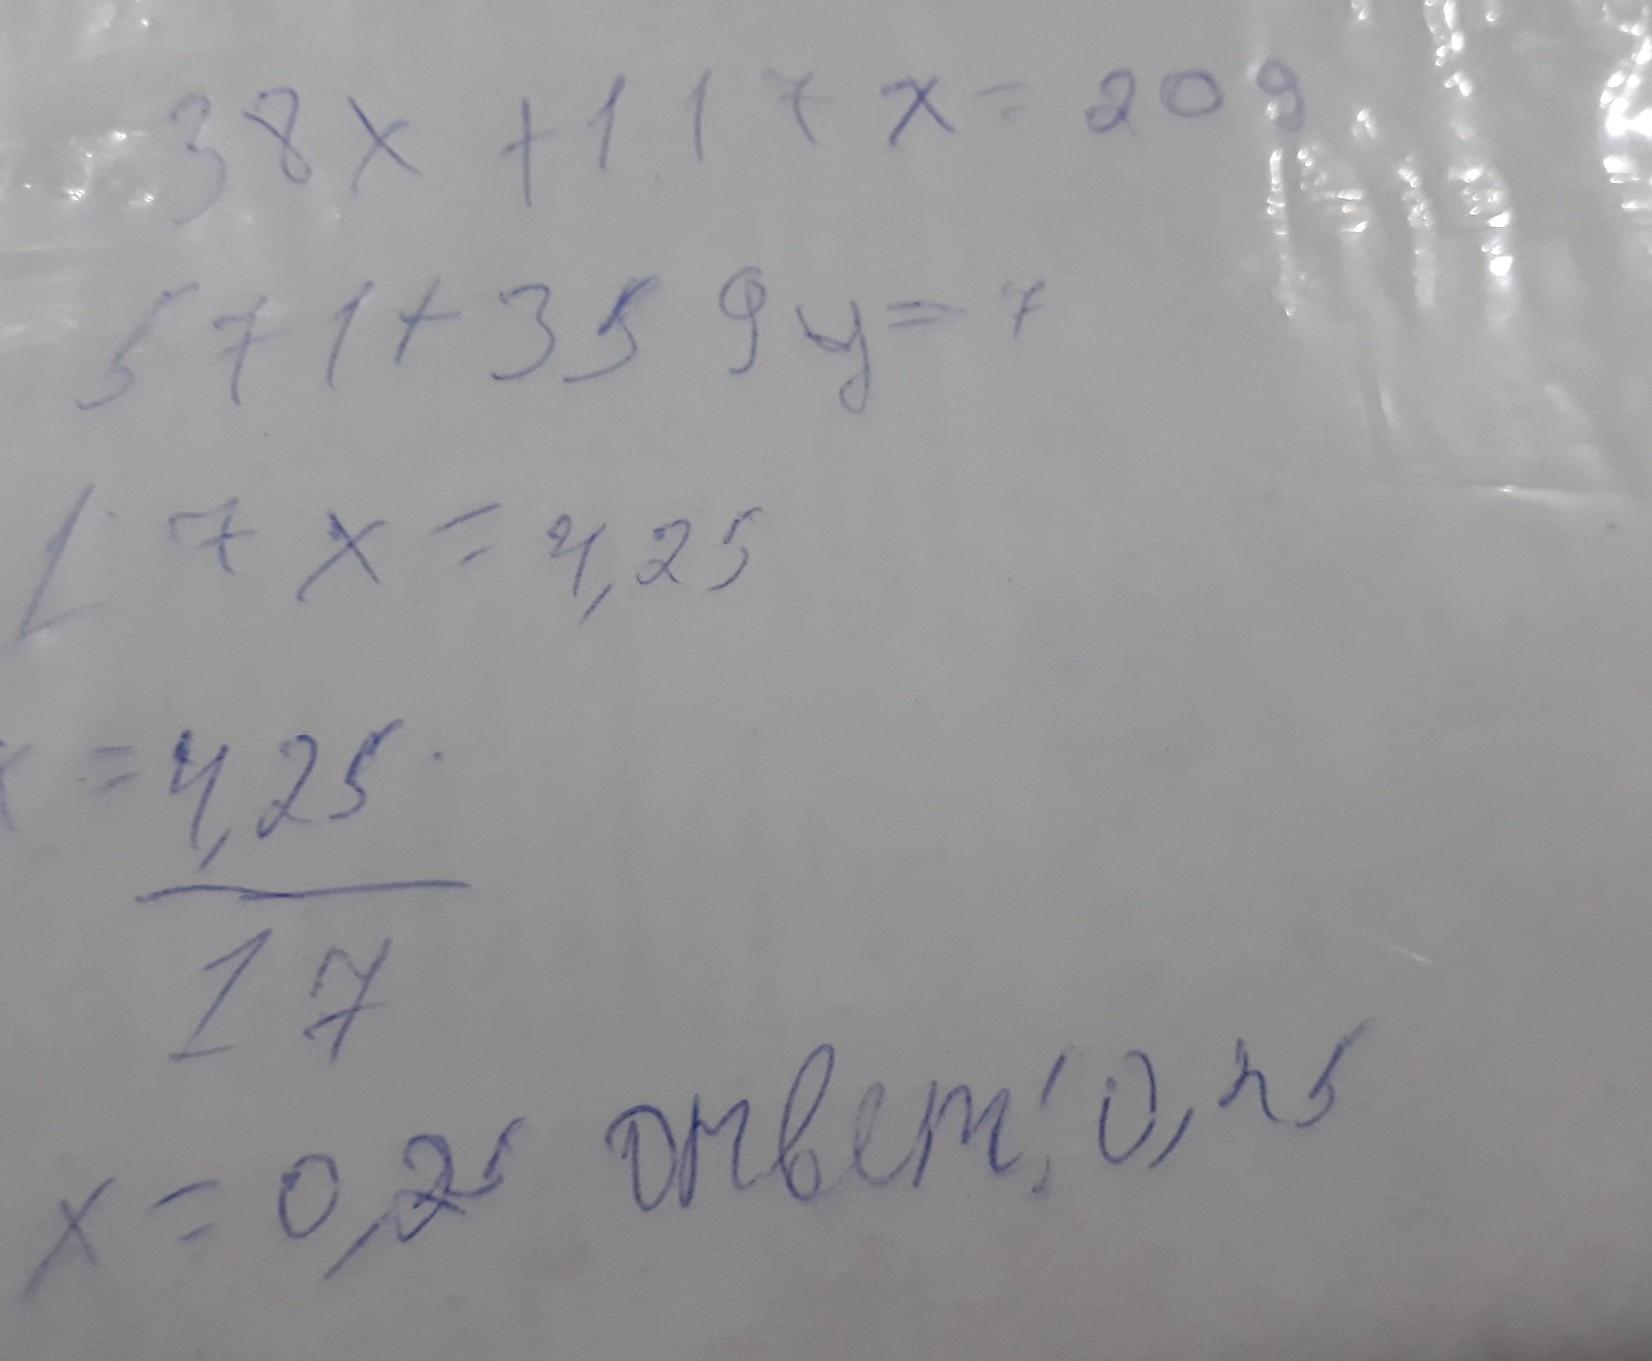 38х + 117х = 209
571 + 359у = 7
17х = 4,25
х = 4,25
17
х = 0,25 ответ: 0,25